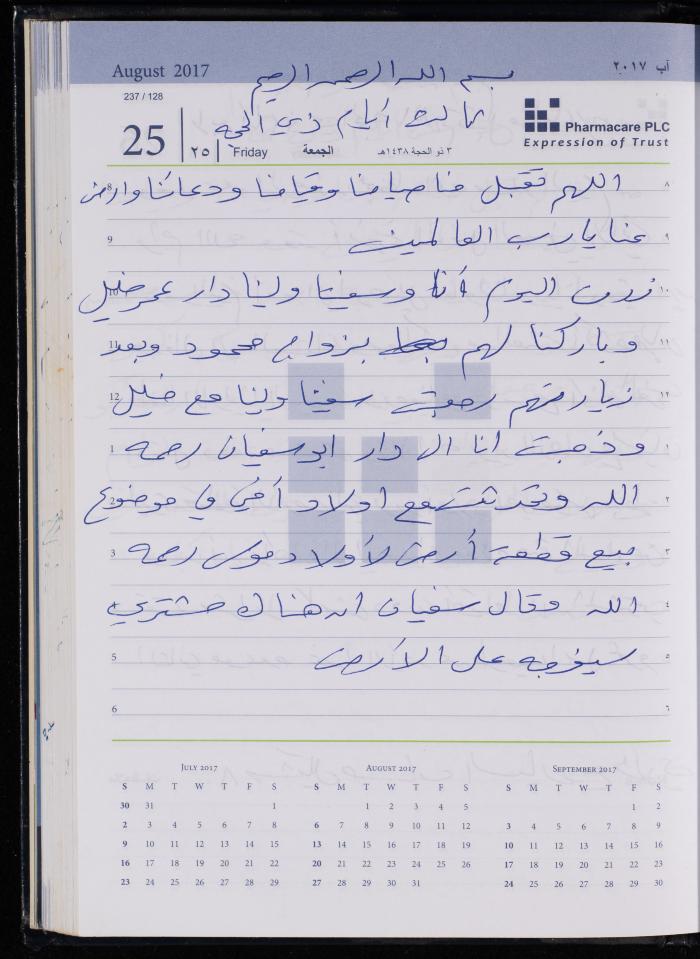 August 2017
آب ٢٠١٧
بسم الله الرحمن الرحيم
237 / 128
ثالث أيام ذي الحجه
25
٢٥
Friday
الجمعة
٣ ذو الحجة ١٤٣٨هـ
Pharmacare PLC
Expression of Trust
8 اللهم تقبل منا صيامنا وقيامنا ودعائنا وارض ٨
9 عنا يارب العالمين ٩
10 زرت اليوم أنا وسفيتا ولينا دار عمر خليل ١٠
11 وباركنا لهم بزواج محمود وبعد ١١
12 زيارتهم رجعت سفيتا ولينا مع خليل ١٢
1 وذهبت انا الى دار ابو سفيان رحمه ١
2 الله وتحدثت مع اولاد أخي في موضوع ٢
3 بيع قطعة أرض لأولاد موسى رحمه ٣
4 الله وقال سفيان ان هناك مشتري ٤
5 سيفرجه على الأرض ٥
6 ٦
July 2017
S M T W T F S
30 31 1
2 3 4 5 6 7 8
9 10 11 12 13 14 15
16 17 18 19 20 21 22
23 24 25 26 27 28 29
August 2017
S M T W T F S
1 2 3 4 5
6 7 8 9 10 11 12
13 14 15 16 17 18 19
20 21 22 23 24 25 26
27 28 29 30 31
September 2017
S M T W T F S
1 2
3 4 5 6 7 8 9
10 11 12 13 14 15 16
17 18 19 20 21 22 23
24 25 26 27 28 29 30